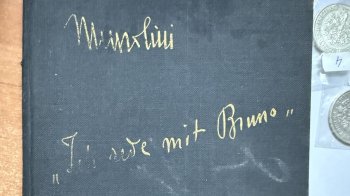 Mussolini
„Ich rede mit Bruno„
4